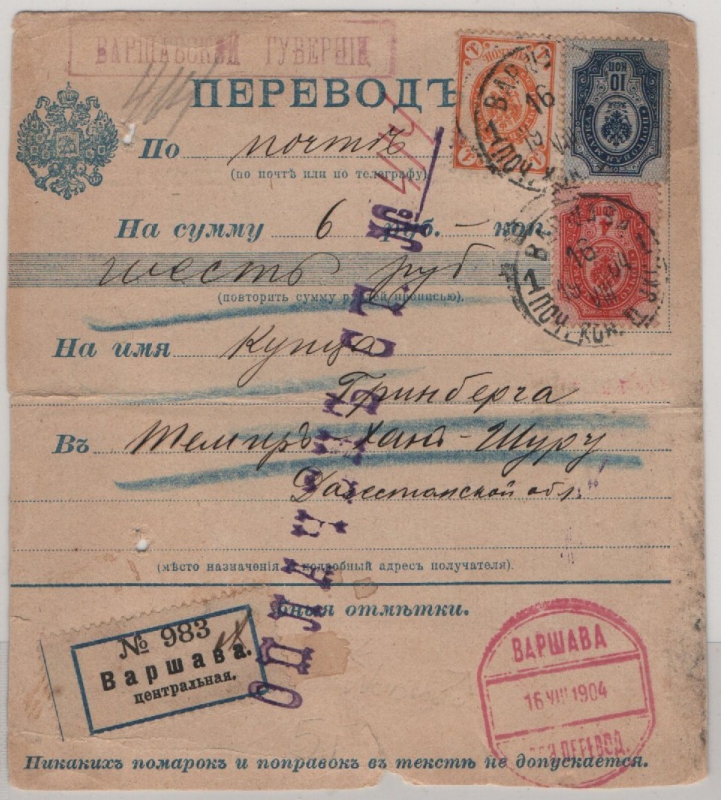 ВАРШАВСКОЙ ГУБЕРНІИ
ПЕРЕВОДЪ
По почтѣ
(по почтѣ или по телеграфу)
На сумму 6 руб. – коп.
шесть руб
(повторить сумму рублей прописью).
На имя Купца
Гринберга
Въ Темиръ-Ханъ-Шуру
Дагестанской обл.
(мѣсто назначенія и подробный адресъ получателя).
отмѣтки.
№ 983
Варшава.
центральная.
ВАРШАВА
16 VIII 1904
ПЕРЕВОД.
Никакихъ помарокъ и поправокъ въ текстѣ не допускается.
1
10
КОП
4
ВАРШАВА
16
1 ПОЧ. ТЕЛ. КОН.